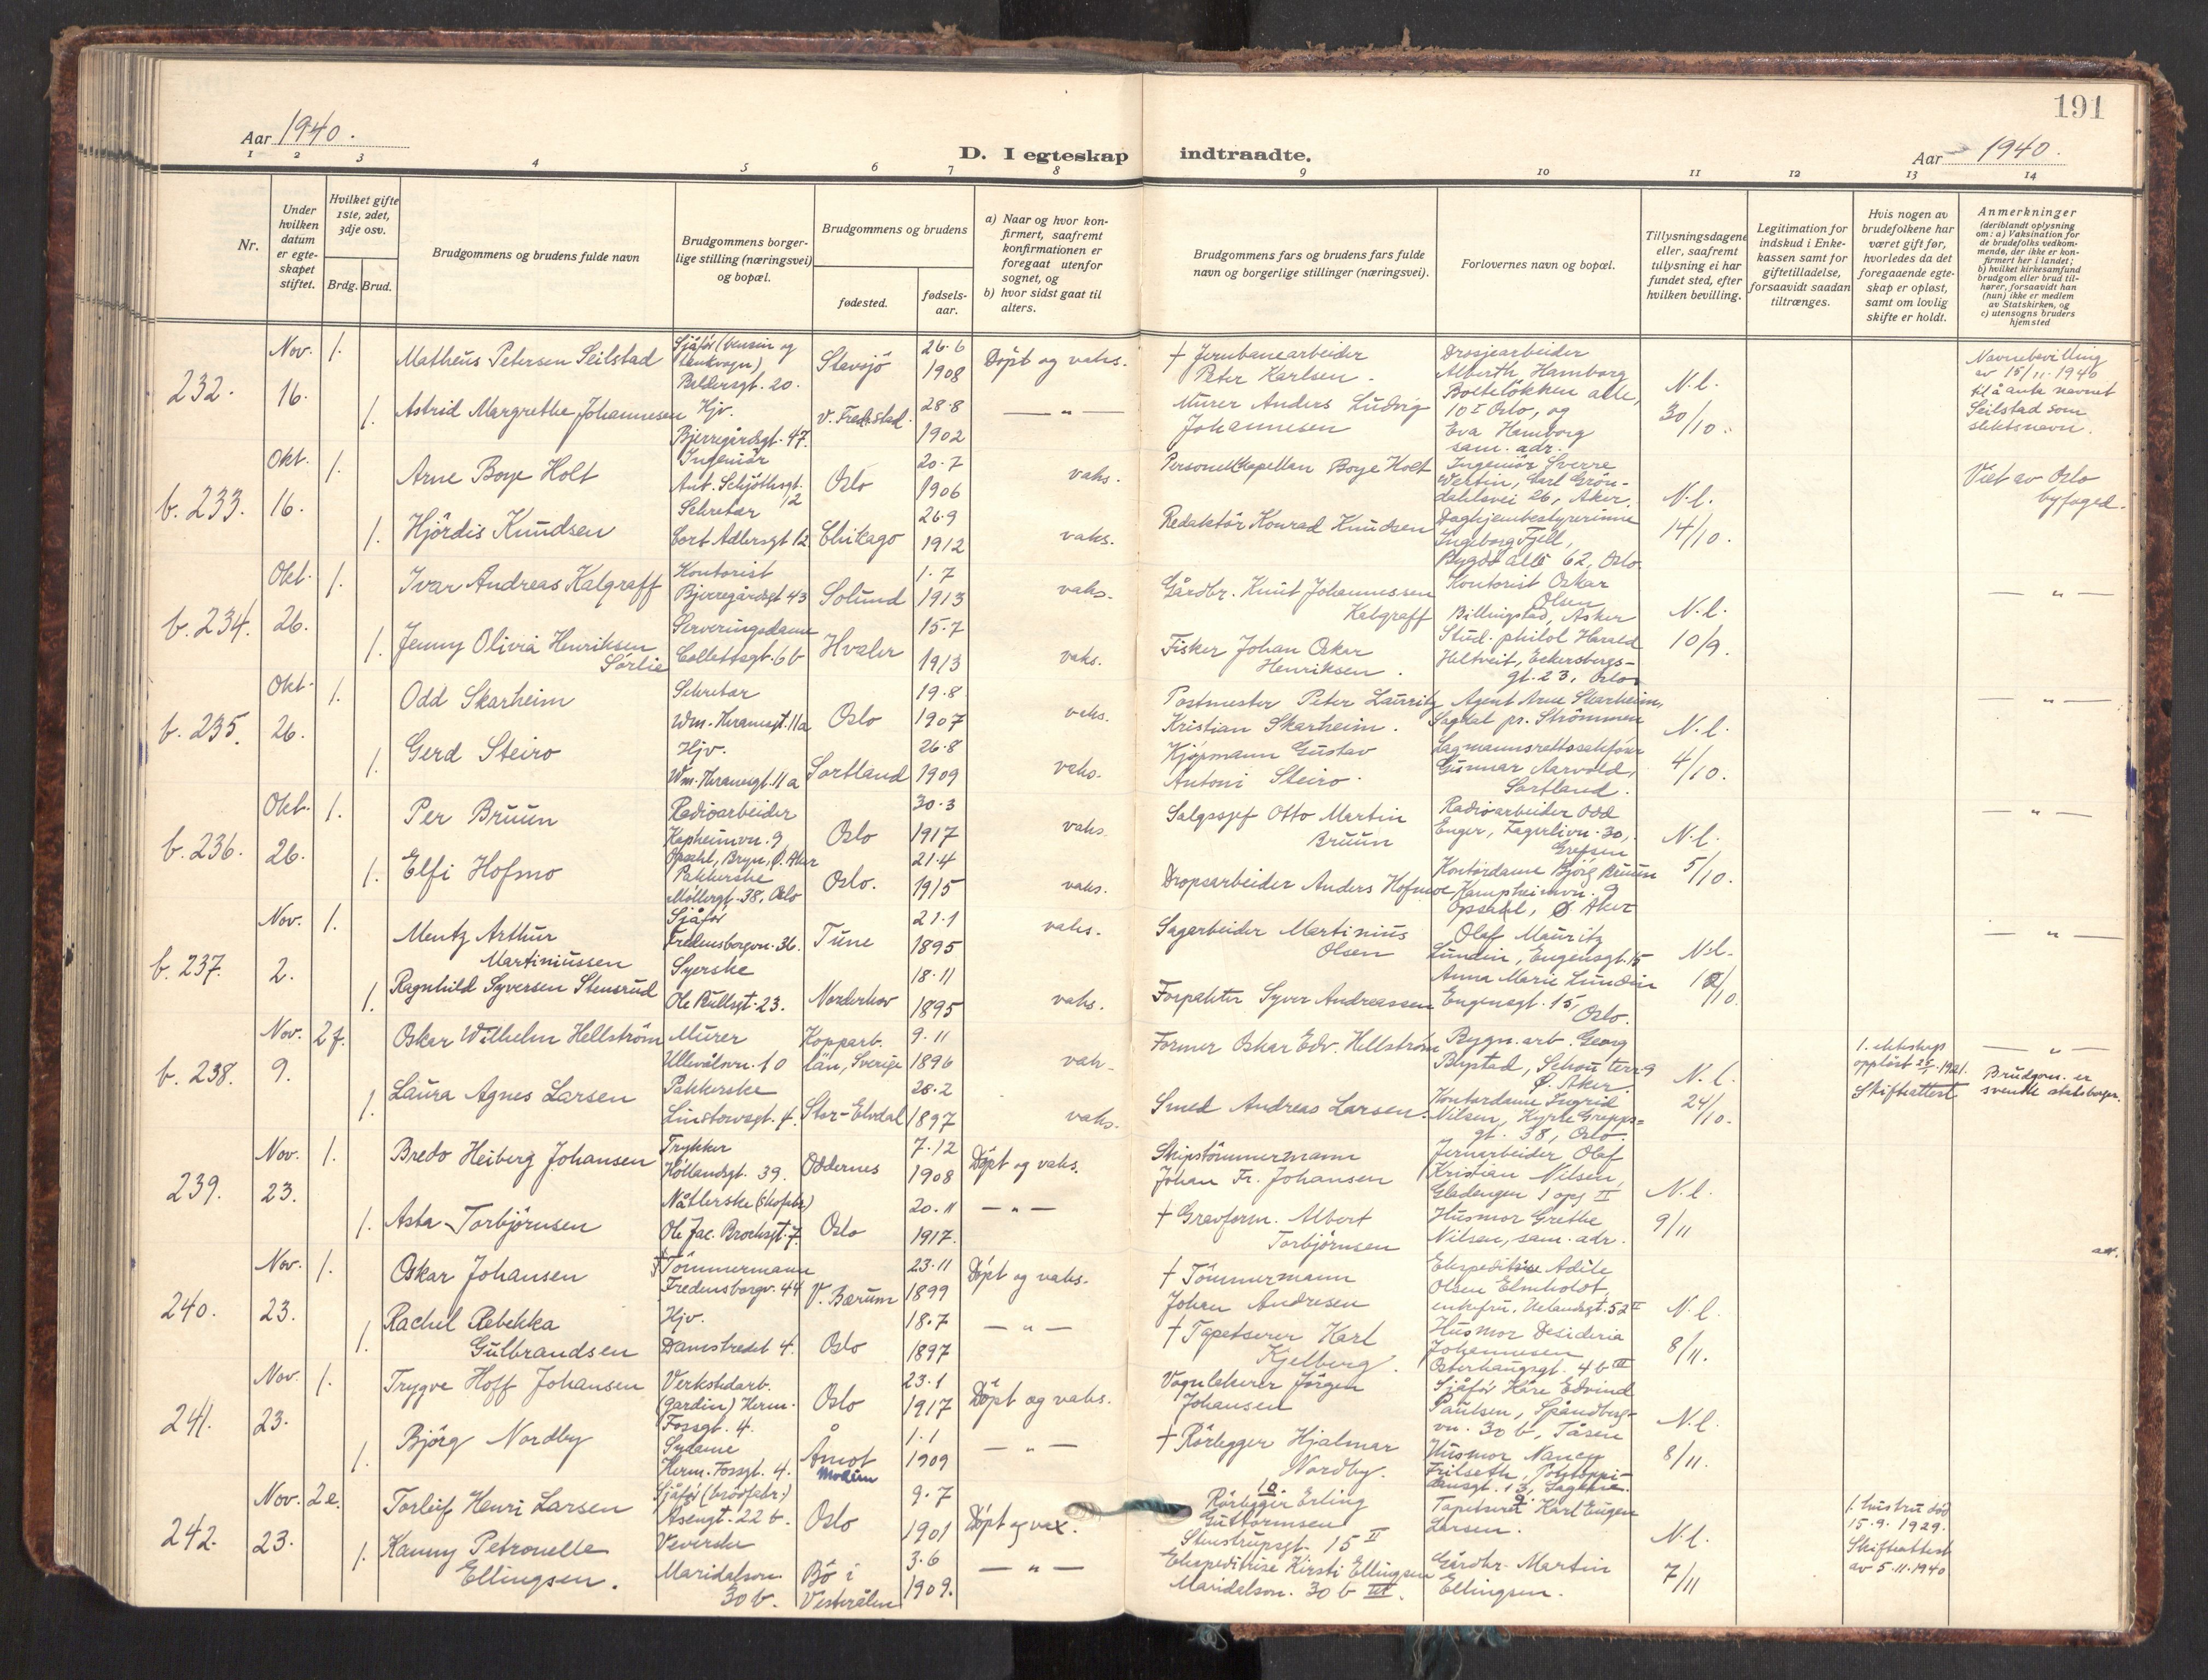 191
Aar 1940.
D. I egteskap indtraadte.
Aar 1940.
1 2 3 4 5 6 7 8 9 10 11 12 13 14
Nr.
Under hvilken datum er egteskapet stiftet.
Hvilket gifte 1ste, 2det, 3dje osv.
Brdg. Brud.
Brudgommens og brudens fulde navn
Brudgommens borger-
lige stilling (næringsvei)
og bopæl.
Brudgommens og brudens
fødested.
fødsels-
aar.
a) Naar og hvor kon-
firmert, saafremt
konfirmationen er
foregaat utenfor
sognet, og
b) hvor sidst gaat til
alters.
Brudgommens fars og brudens fars fulde
navn og borgerlige stillinger (næringsvei).
Forlovernes navn og bopæl.
Tillysningsdagene
eller, saafremt
tillysning ei har
fundet sted, efter
hvilken bevilling.
Legitimation for
indskud i Enke-
kassen samt for
giftetilladelse,
forsaavidt saadan
tiltrænges.
Hvis nogen av
brudefolkene har
været gift før,
hvorledes da det
foregaaende egte-
skap er opløst,
samt om lovlig
skifte er holdt.
Anmerkninger
(deriblandt oplysning
om: a) Vaksination for
de brudefolks vedkom-
mende, der ikke er kon-
firmert her i landet;
b) hvilket kirkesamfund
brudgom eller brud til-
hører, forsaavidt han
(hun) ikke er medlem
av Statskirken, og
c) utensogns bruders
hjemsted
232.
Nov. 16.
1.
Matheus Petersen Seilstad
Sjåfør (bensin og
tankvogn)
Baldersgt. 20.
Stavsjø
26.6
1908
Döpt og vaks.
† Jernbanearbeider
Peter Karlsen.
Drosjearbeider
Alberth Hamborg
Bolteløkken alle,
10 I Oslo, og
Eva Hamborg
sam. adr.
N.l.
30/10.
Navnebevilling
av 15/11. 1940
til å anta navnet
Seilstad som
slektsnavn.
1.
Astrid Margrethe Johannesen
Hjv.
Bjerregårdsgt. 47.
v. Fredrikstad.
28.8
1902
— " —
Murer Anders Ludvig
Johannesen
b. 233.
Okt. 16.
1.
Arne Boye Holt
Ingeniør
Ant. Schjöthsgt.
12
Oslo
20.7
1906
vaks.
Personellkapellan Boye Holt
Ingeniør Sverre
Wettin, Carl Grön-
dahlsvei 26, Aker.
N.l.
14/10.
Viet av Oslo
byfoged.
1.
Hjördis Knudsen
Sekretær
Cort Adlersgt 12
Chikago
26.9
1912
vaks.
Redaktör Konrad Knudsen
Daghjembestyrerinne
Ingeborg Fjell,
Bygdö alle 62, Oslo
b. 234.
Okt. 26.
1.
Ivar Andreas Kalgraff
Kontorist
Bjerregårdsgt 43
Solund
1.7
1913
vaks.
Gårdbr. Knut Johannessen
Kalgraff
Kontorist Oskar
Olsen
Billingstad, Asker
N.l.
10/9.
— " —
1.
Jenny Olivia Henriksen
Sörlie
Serveringsdame
Collettsgt. 6b
Hvaler
15.7
1913
vaks.
Fisker Johan Oskar
Henriksen.
Stud. philol Harald
Heltveit, Eckersbergs-
gt. 23, Oslo
b. 235.
Okt. 26.
1.
Odd Skarheim
Sekretær
Wm. Thranesgt. 11a
Oslo
19.8
1907
vaks.
Postmester Peter Lauritz
Kristian Skarheim.
Agent Arne Skarheim,
Sagdal pr. Strömmen
N.l.
4/10.
— " —
1.
Gerd Steiro
Hjv.
Wm. Thranesgt. 11a
Sortland
26.8
1909
vaks.
Kjöpmann Gustav
Antoni Steiro.
Lagmannsrettssakförer
Gunnar Aarvold,
Sortland.
b. 236.
Okt. 26.
1.
Per Bruun
Radioarbeider
Kapheimvn. 9
Opsahl, Bryn, Ø. Aker
Oslo
30.3
1917
vaks
Salgssjef Otto Martin
Bruun
Radioarbeider Odd
Enger, Fagerlivn. 30,
Grefsen
N.l.
5/10.
— " —
1.
Elfi Hofmo
Pakkerske
Møllergt. 38, Oslo
Oslo.
21.4
1915
vaks.
Dropsarbeider Anders Hofmoe
Kontordame Bjørg Bruun
Kampheimvn. 9
Opsahl, Ø Aker
b. 237.
Nov. 2.
1.
Mentz Arthur
Martiniussen
Sjåfør
Fredensborgvn. 36.
Tune
21.1
1895
vaks.
Sagarbeider Martinius
Olsen
Olaf Mauritz
Lundin, Eugensgt. 15
N.l.
— " —
1.
Ragnhild Syversen Stensrud
Syerske
Ole Bullsgt. 23.
Norderhov
18.11
1895
vaks.
Forpakter Syver Andreassen
Anna Marie Lundin
Eugensgt. 15,
Oslo.
b. 238.
Nov. 9.
2 f.
Oskar Wilhelm Hellström
Murer
Ullevålsvn. 10
Kopparb.
län, Sverige
9.11
1896
vak.
Former Oskar Edv. Hellström
Bygn. arb. Georg
Bystad, Schou terr 9
Ø. Aker.
N.l.
24/10.
1. ekteskap
Skifteattest
— " —
Brudgom. er
svensk statsborger.
1.
Laura Agnes Larsen
Pakkerske
Linstowsgt. 4.
Stor-Elvdal
28.2
1897
vaks.
Smed Andreas Larsen.
Kontordame Ingrid
Nilsen, Kyrre Grepps-
gt. 38, Oslo.
239.
Nov. 23.
1.
Bredo Heiberg Johansen
Trykker
Hollandsgt. 39.
Oddernes
7.12
1908
Döpt og vaks.
Skipstömmermann
Johan Fr. Johansen
Jernarbeider Olaf
Kristian Nilsen,
Gladengen 1 opg II
N.l.
9/11
1.
Asta Torbjörnsen
Nåtlerske (skofabr)
Ole Jac. Brochsgt. 7.
Oslo
20.11
1917.
— " —
† Gravform. Albert
Torbjörnsen
Husmor Grethe
Nilsen, sam. adr.
240.
Nov. 23.
1.
Oskar Johansen
Tömmermann
Fredensborgv. 44
V. Bærum
23.11
1899
Döpt og vaks.
† Tömmermann
Johan Andresen
Ekspeditrise Adile
Olsen Elmholdt,
enkefru, Uelandsgt. 52 II
N.l.
8/11.
1.
Rachel Rebekka
Gulbrandsen
Hjv.
Damstredet 4.
Oslo
18.7
1897
— " —
† Tapetserer Karl
Kjelberg.
Husmor Desideria
Johannesen
Osterhausgt. 4 b III
241.
Nov. 23.
1.
Trygve Hoff Johansen
Verkstedarb.
(gardin) Herm.
Fossgt. 4.
Oslo
23.1
1917
Döpt og vaks.
Vognlakerer Jörgen
Johansen
Sjåför Kåre Edvind
Paulsen, Spångberg-
vn. 30 b, Tåsen
N.l.
8/11.
1.
Björg Nordby
Sydame
Herm. Fossgt. 4.
Åmot
Modum
1.1
1909
— " —
† Rörlegger Hjalmar
Nordby.
Husmor Nancy
Frilseth, Pontoppi-
dansgt. 13, Sagene.
242.
Nov. 23.
2 e.
Torleif Henri Larsen
Sjåfør (brödfabr.)
Åsengt. 22 b.
Oslo
9.7
1901
Döpt og vax.
10
Rörlegger Erling
Guttormsen
Stenstrupsgt. 15 II
9
Tapetserer Karl Eugen
Larsen.
N.l.
7/11
1. hustru död
15.9.1929.
Skifteattest
av 5.11.1940
1.
Kanny Petronelle
Ellingsen.
Veverske
Maridalsvn.
30 b.
Bö i
Vesterålen
3.6
1909.
— " —
Ekspeditrise Kirsti Ellingsen
Maridalsvn. 30 b III.
Gårdbr. Martin
Ellingsen.